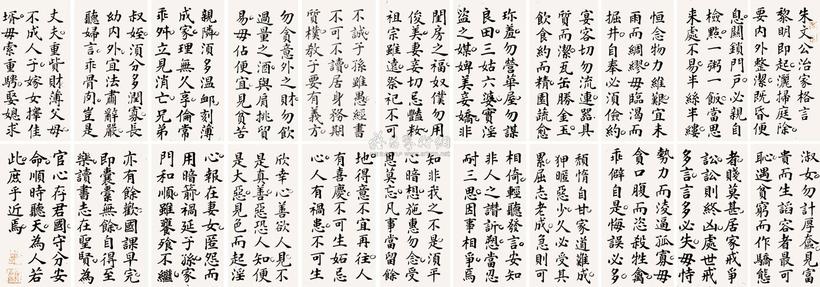 朱文公治家格言
黎明即起灑掃庭除
要內外整潔既昏便
息關鎖門戶必親自
檢點一粥一飯當思
來處不易半絲半縷
恒念物力維艱宜未
雨而綢繆毋臨渴而
掘井自奉必須儉約
宴客切勿流連器具
質而潔瓦缶勝金玉
飲食約而精園蔬愈
珍羞勿營華屋勿謀
良田三姑六婆實淫
盜之媒婢美妾嬌非
閨房之福奴僕勿用
俊美妻妾切忌豔粧
祖宗雖遠祭祀不可
不誠子孫雖愚經書
不可不讀居身務期
質樸教子要有義方
勿貪意外之財勿飲
過量之酒與肩挑貿
易毋佔便宜見貧苦
親鄰須多溫卹刻薄
成家理無久享倫常
乖舛立見消亡兄弟
叔姪須分多潤寡長
幼內外宜法肅辭嚴
聽婦言乖骨肉豈是
丈夫重貲財薄父母
不成人子嫁女擇佳
壻毋索重聘娶媳求
淑女勿計厚奩見富
貴而生諂容者最可
恥遇貧窮而作驕態
者賤莫甚居家戒爭
訟訟則終凶處世戒
多言言多必失毋恃
勢力而凌逼孤寡毋
貪口腹而恣殺牲禽
乖僻自是悔誤必多
頹惰自甘家道難成
狎暱惡少久必受其
累屈志老成急則可
相倚輕聽發言安知
非人之譖訴當忍
耐三思因事相爭焉
知非我之不是須平
心暗想施惠勿念受
恩莫忘凡事當留餘
地得意不宜再往人
有喜慶不可生妒忌
心人有禍患不可生
欣幸心善欲人見不
是真善惡恐人知便
是大惡見色而起淫
心報在妻女匿怨而
用暗箭禍延子孫家
門和順雖饔飧不繼
亦有餘歡國課早完
即囊橐無餘自得至
樂讀書志在聖賢為
官心存君國守分安
命順時聽天為人若
此庶乎近焉